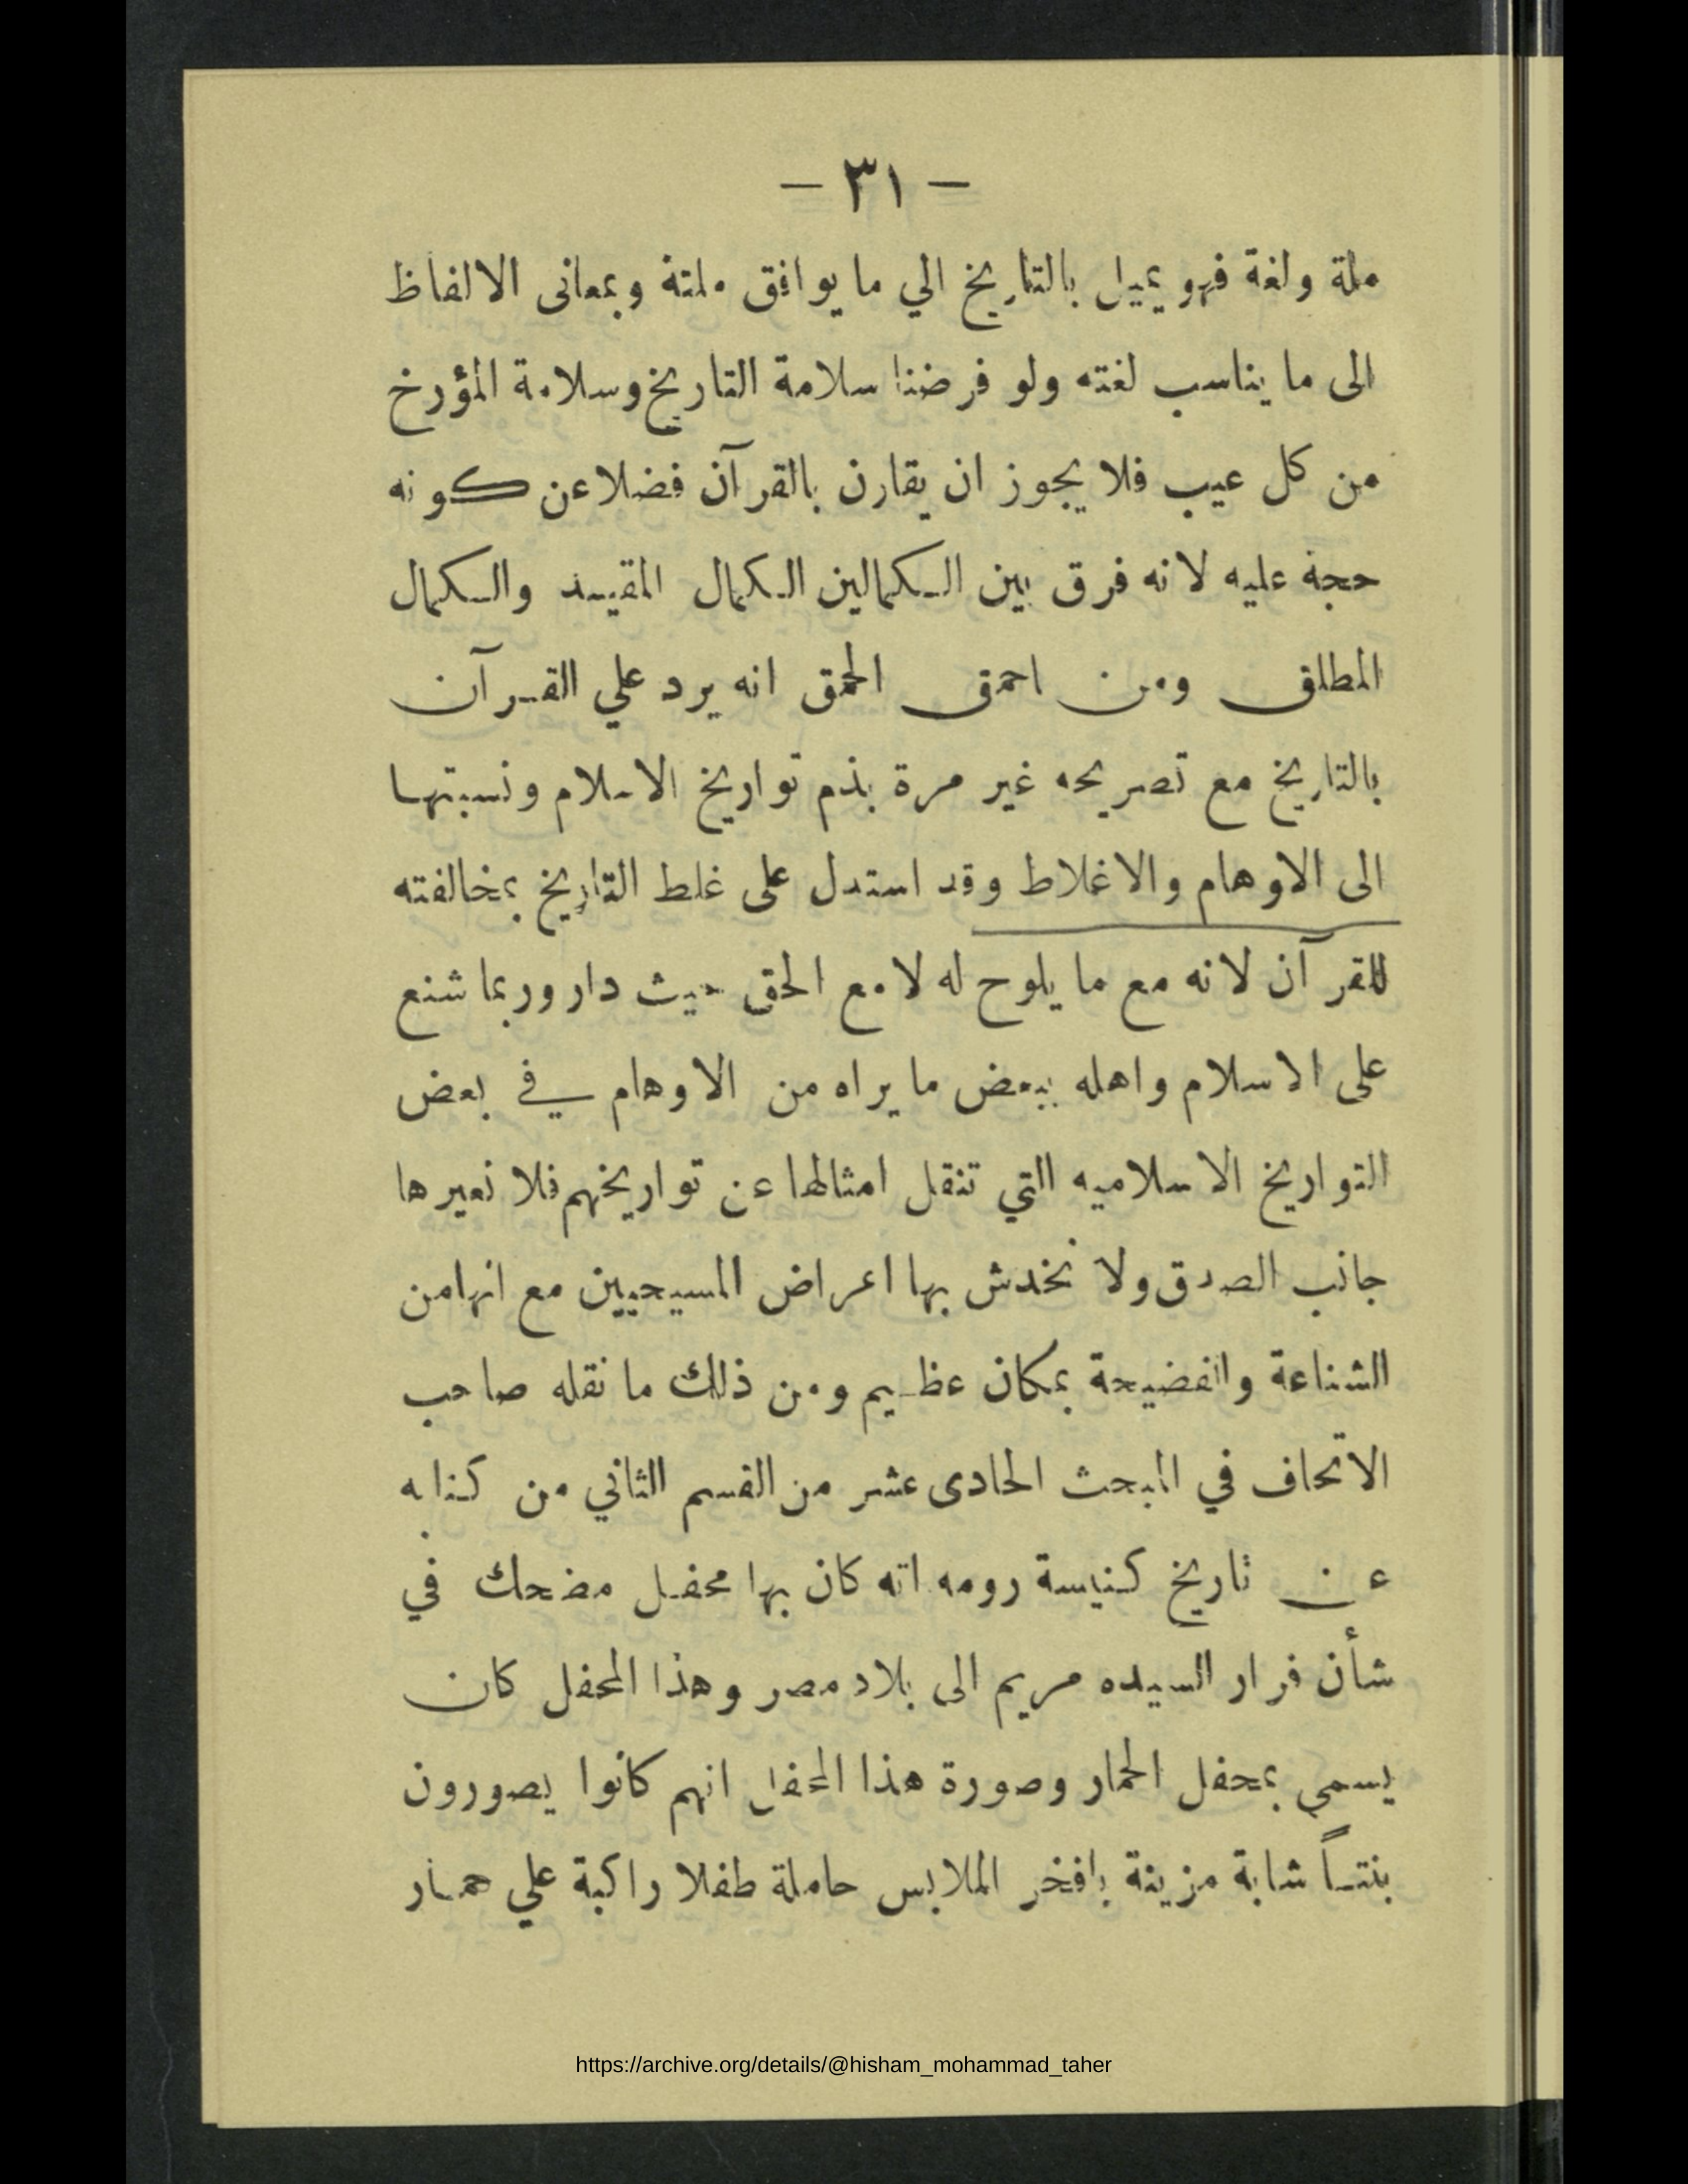 — ٣١ —
ملة ولغة فهو يميل بالتاريخ الي ما يوافق ملتة وبمعانى الالفاظ
الى ما يناسب لغته ولو فرضنا سلامة التاريخ وسلامة المؤرخ
من كل عيب فلا يجوز ان يقارن بالقرآن فضلا عن كونه
حجة عليه لانه فرق بين الكمالين الكمال المقيد والكمال
المطلق ومن احمق الحمق انه يرد علي القرآن
بالتاريخ مع تصريحه غير مرة بذم تواريخ الاسلام ونسبتها
الى الاوهام والاغلاط وقد استدل على غلط التاريخ بمخالفته
للقرآن لانه مع ما يلوح له لا مع الحق حيث دار وربما شنع
على الاسلام واهله ببعض ما يراه من الاوهام في بعض
التواريخ الاسلاميه التي تنقل امثالها عن تواريخهم فلا نعيرها
جانب الصدق ولا نخدش بها اعراض المسيحيين مع انها من
الشناعة والفضيحة بمكان عظيم ومن ذلك ما نقله صاحب
الاتحاف في المبحث الحادى عشر من القسم الثاني من كتابه
عن تاريخ كنيسة رومه انه كان بها محفل مضحك في
شأن فرار السيده مريم الى بلاد مصر وهذا المحفل كان
يسمي بمحفل الحمار وصورة هذا المحفل انهم كانوا يصورون
بنتاً شابة مزينة بافخر الملابس حاملة طفلا راكبة علي حمار
https://archive.org/details/@hisham_mohammad_taher